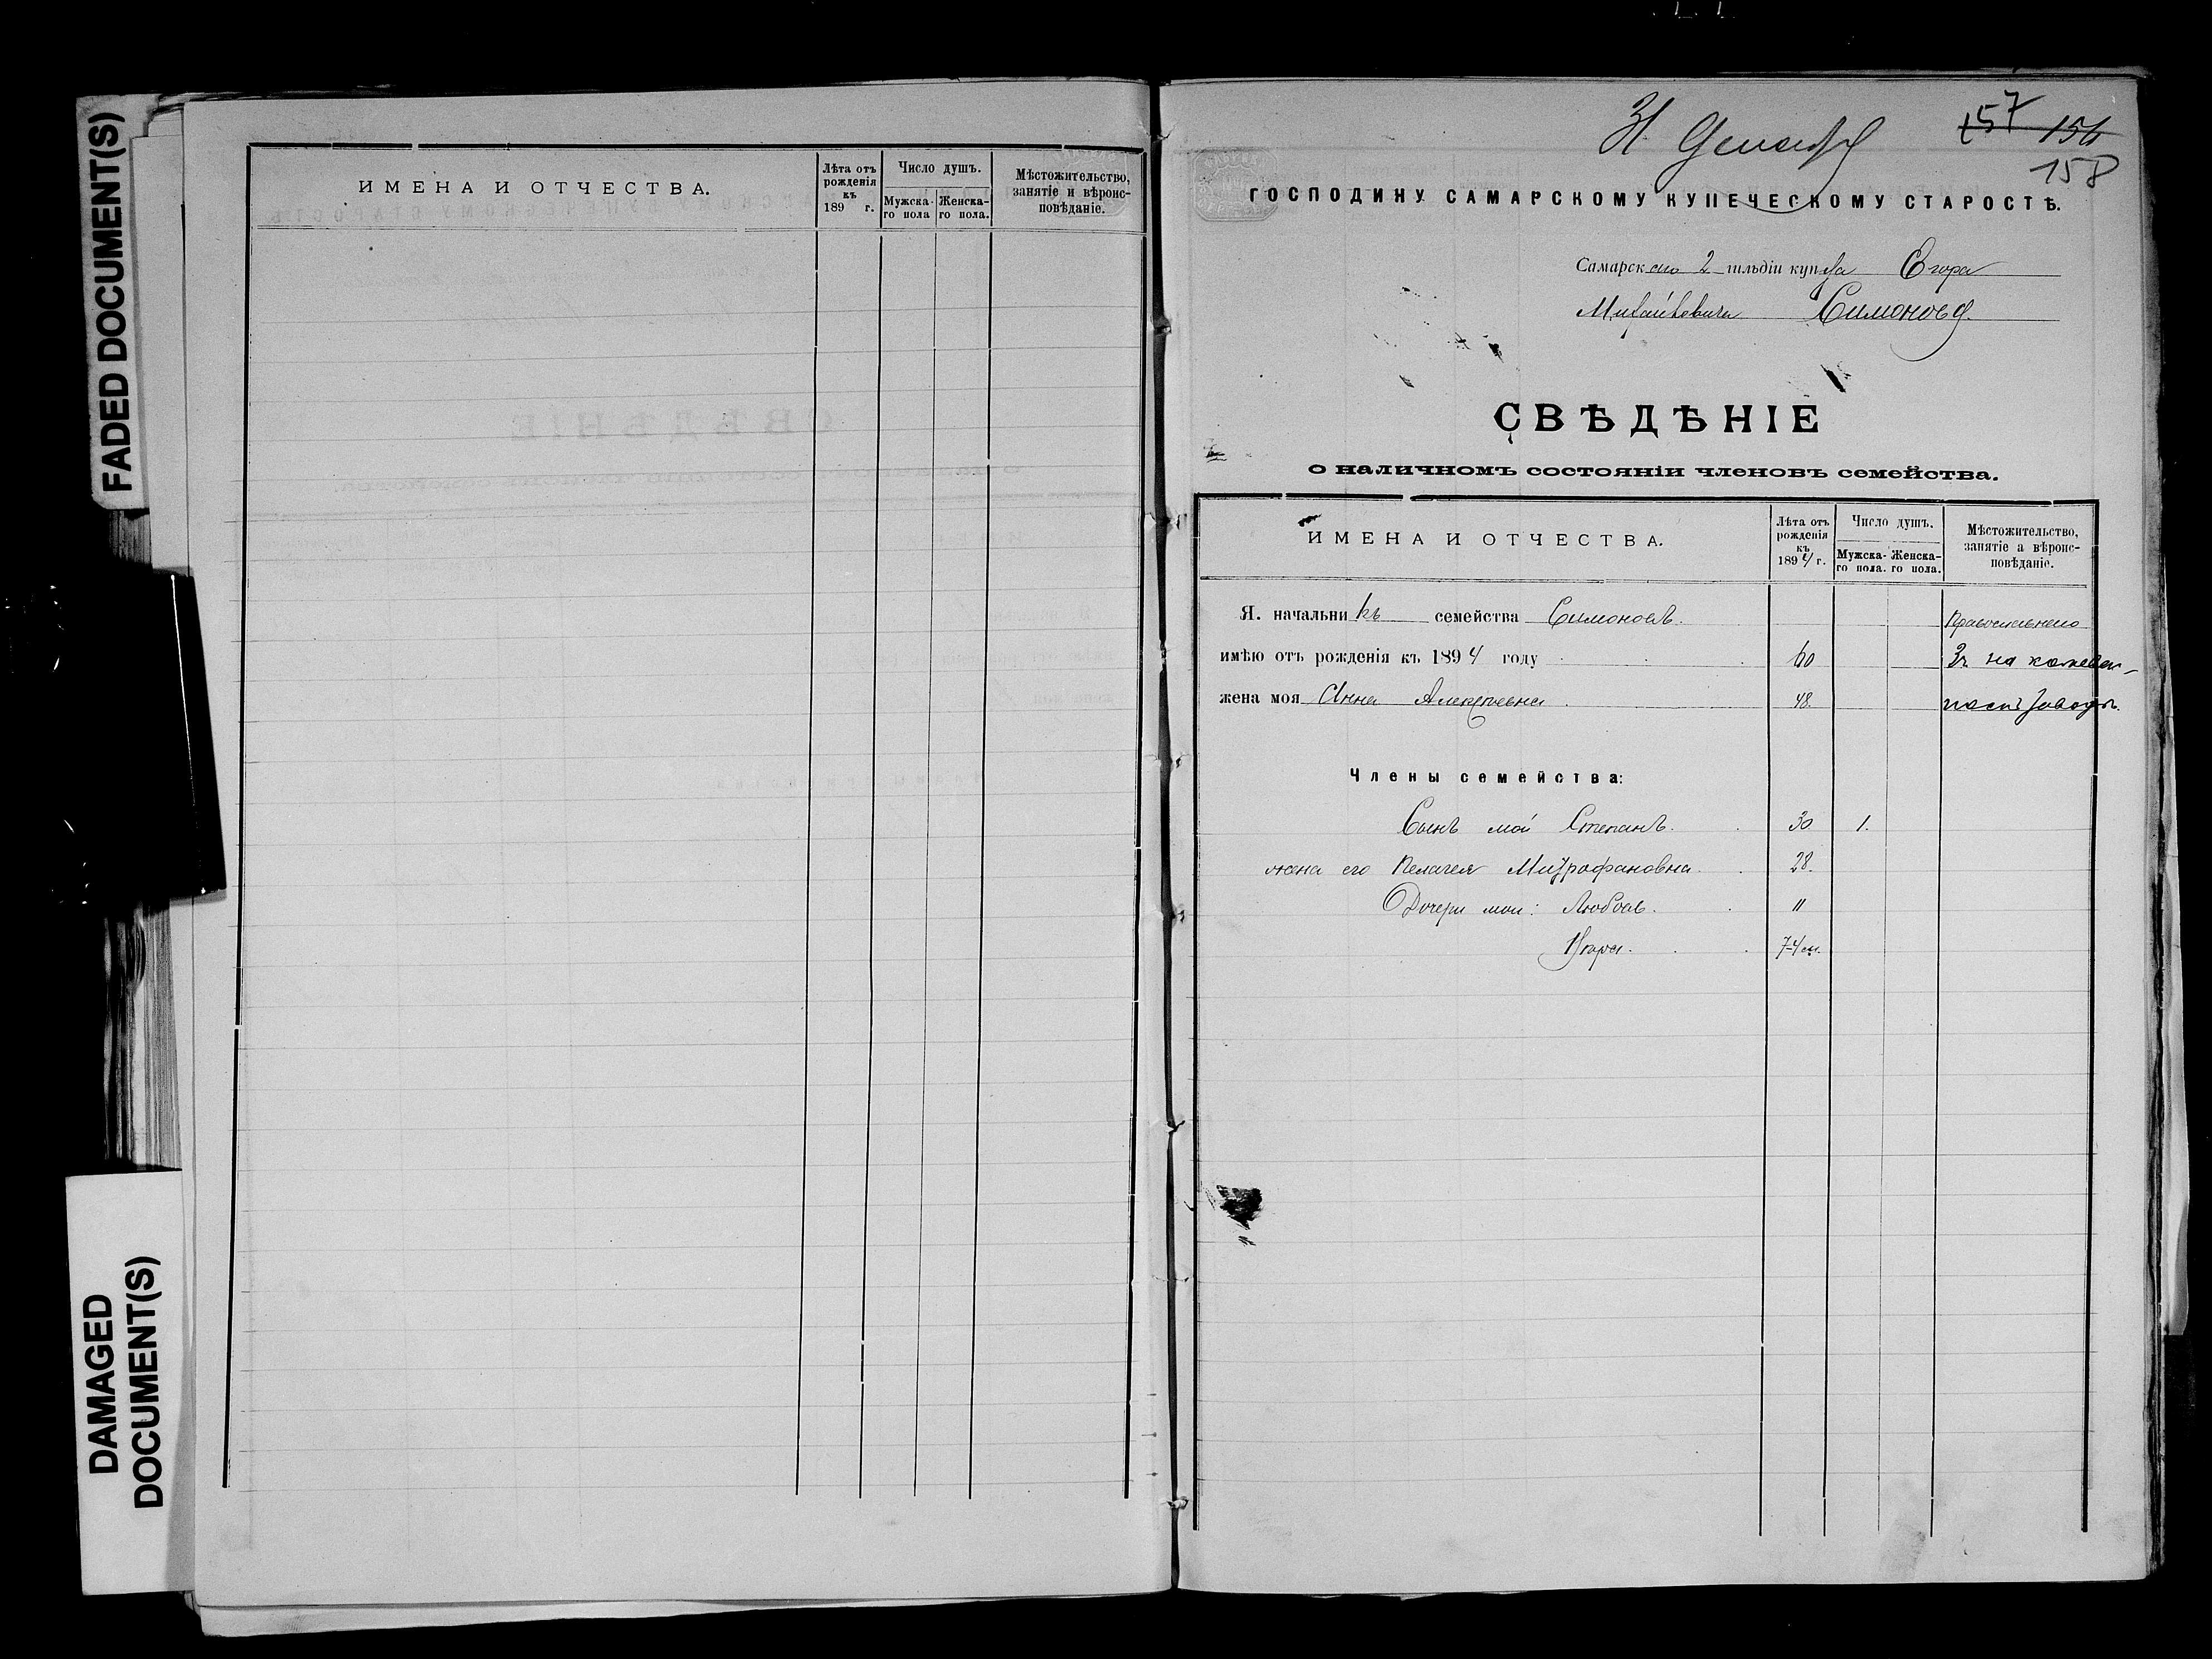 FADED DOCUMENT(S)
DAMAGED
DOCUMENT(S)
ИМЕНА И ОТЧЕСТВА.
Лѣта отъ
рожденія
къ
189 г.
Число душъ.
Мужска-
го пола
Женска-
го пола.
Мѣстожительство,
занятіе и вѣроис-
повѣданіе.
31
157 156
158
ГОСПОДИНУ САМАРСКОМУ КУПЕЧЕСКОМУ СТАРОСТѢ.
Самарскаго 2 гильдіи купца Егора
Михайловича Симонова
СВѢДѢНІЕ
о наличномъ состояніи членовъ семейства.
ИМЕНА И ОТЧЕСТВА.
Лѣта отъ
рожденія
къ
1894 г.
Число душъ.
Мужска-
го пола.
Женска-
го пола.
Мѣстожительство,
занятіе а вѣроис-
повѣданіе.
Я. начальникъ семейства Симоновъ. Православнаго
имѣю отъ рожденія къ 1894 году 60 на
жена моя Анна Алексѣевна 48. заводѣ.
Члены семейства:
Сынъ мой Степанъ. 30 1.
жена его Пелагея Митрофановна. 28.
Дочери мои: Любовь. 11
7